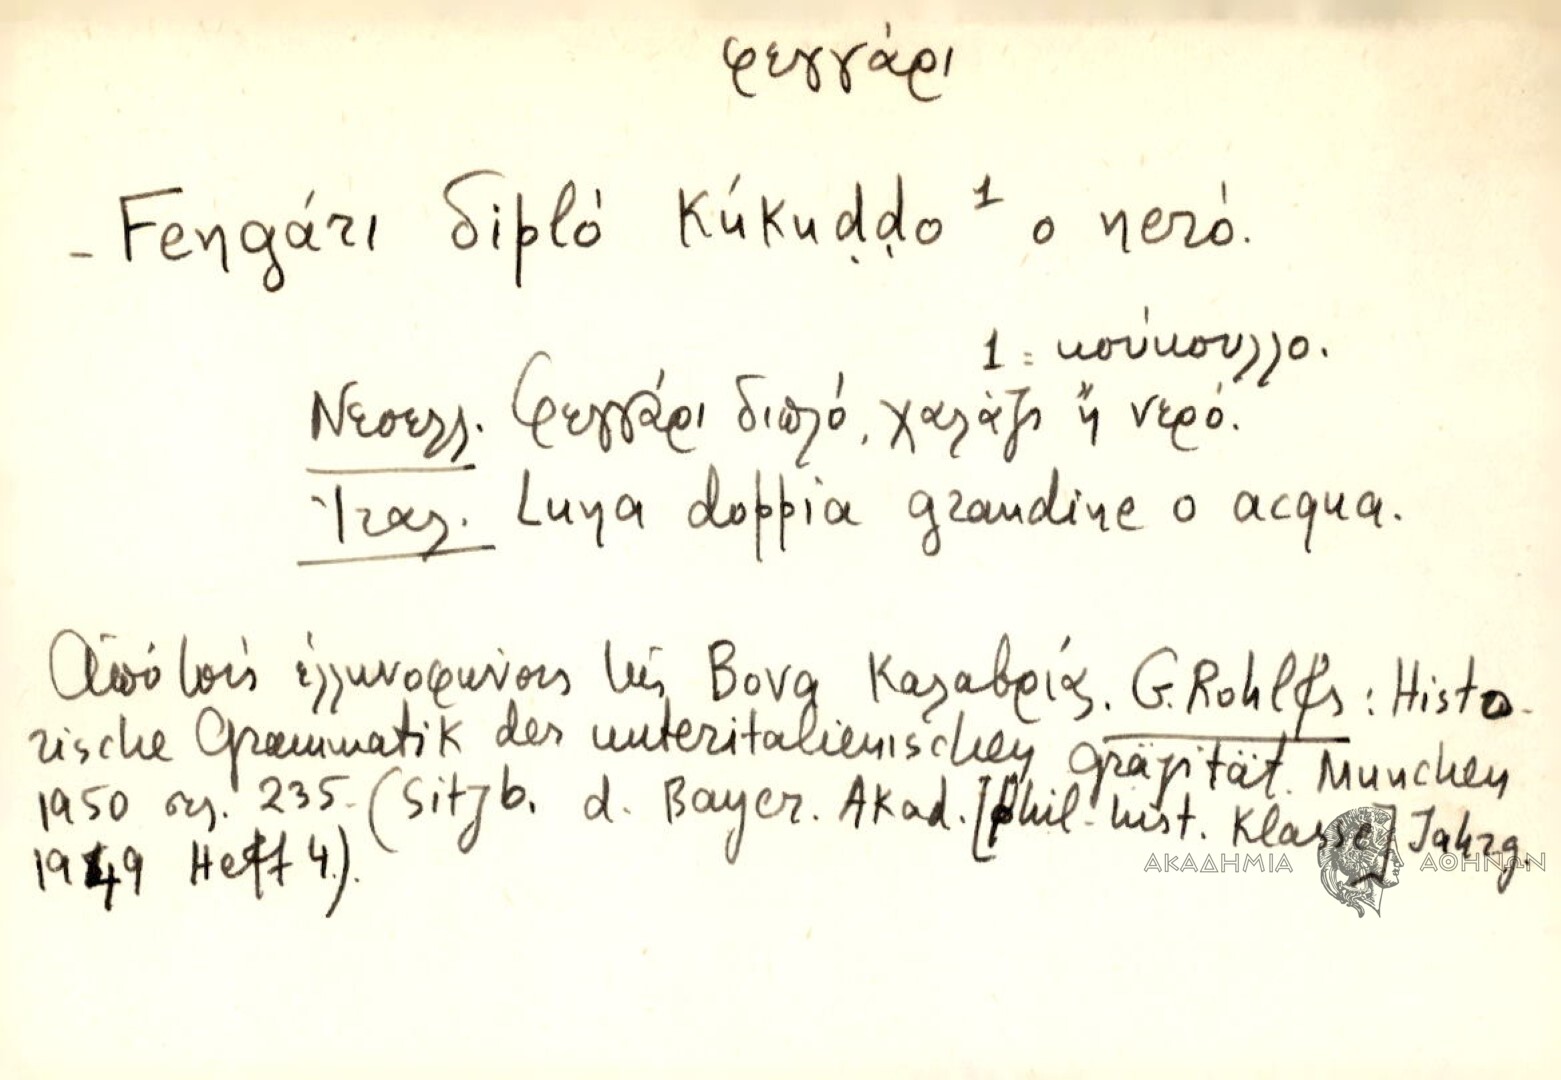 φεγγάρι
- Fengári dipló kúkuḍḍo ¹ o neró.
1 = κούκουλλο.
Νεοελλ. Φεγγάρι διπλό, χαλάζι ἤ νερό.
Ἰταλ. Luna doppia grandine o acqua.
Ἀπό τούς ἑλληνοφώνους τῆς Bova Καλαβρίας. G. Rohlfs: Histo-
rische Grammatik der unteritalienischen Gräzität. Munchen
1950 σελ. 235. (Sitzb. d. Bayer. Akad. [phil.-hist. Klasse] Jahrg.
1949 Heft 4).
ΑΚΑΔΗΜΙΑ ΑΘΗΝΩΝ